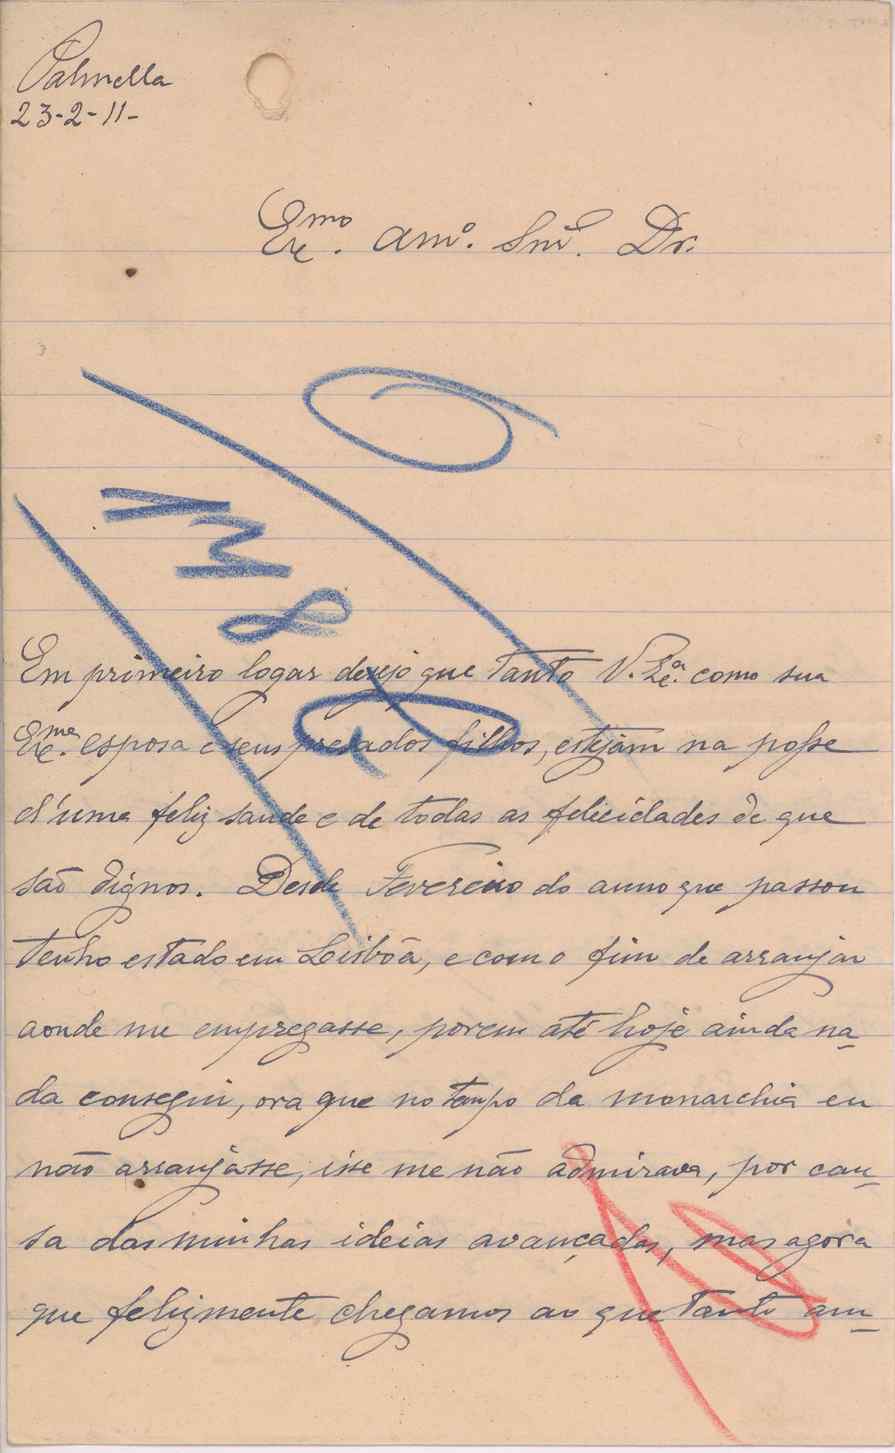 Palmella
23-2-11-
Exmo. Amo. Snr. Dr.
Em primeiro logar desejo que tanto V. Exa. como sua
Exma. esposa e seus presados filhos, estejam na posse
d'uma feliz saude e de todas as felicidades de que
são dignos. Desde Fevereiro do anno que passou
tenho estado em Lisbôa, e com o fim de arranjar
aonde me empregasse, porem até hoje ainda na-
da consegui, ora que no tempo da monarchia eu
não arranjasse, isse me não admirava, por cau-
sa das minhas ideias avançadas, mas agora
que felizmente chegamos ao que tanto am-